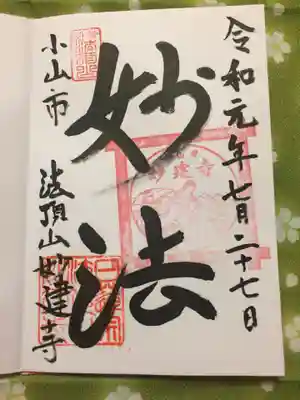 令和元年七月二十七日
妙法
小山市 法頂山妙建寺